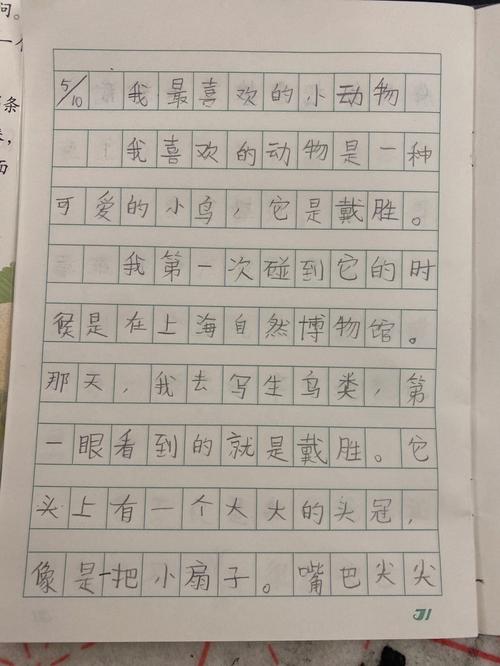 问。
一个
条
面
5/10 我最喜欢的小动物
我喜欢的动物是一种
可爱的小鸟，它是戴胜。
我第一次碰到它的时
候是在上海自然博物馆。
那天，我去写生鸟类，第
一眼看到的就是戴胜。它
头上有一个大大的头冠，
像是一把小扇子。嘴巴尖尖